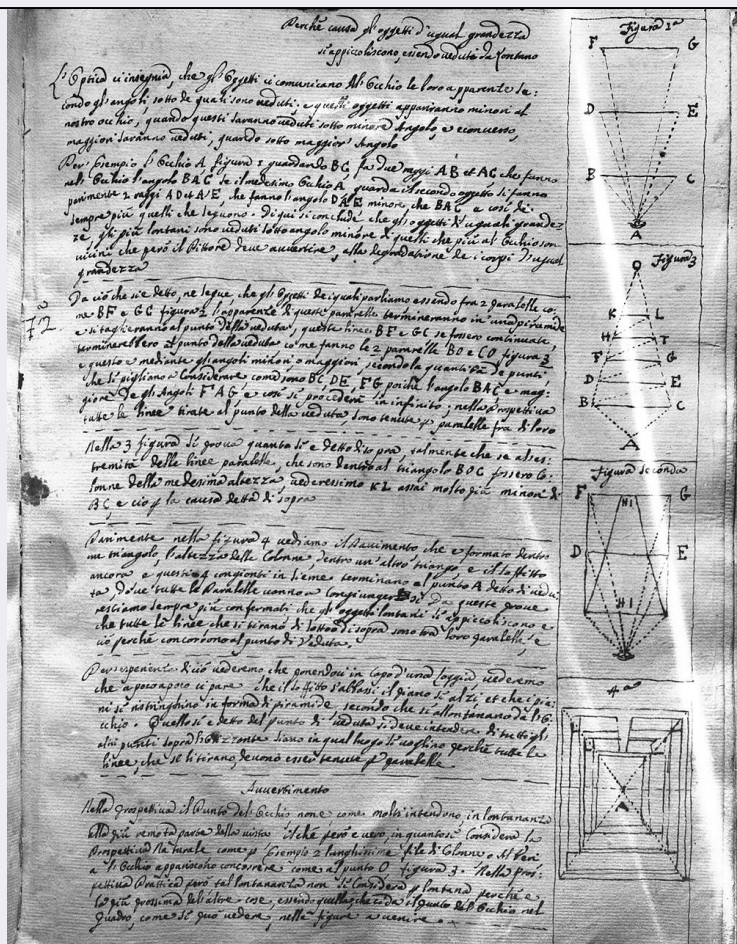 Perche causa gl'oggetti d'ugual grandezza
si appicoliscono, essendo veduti da lontano
L'Optica ci insegnia, che gl'Oggetti ci comunicano All'Occhio le loro apparente se:
condo gl'angoli sotto de quali sono veduti: e questi oggetti appariranno minori al
nostro occhio, quando questi saranno veduti sotto minore Angolo, e econverso,
maggiori saranno veduti, quando sotto maggior Angolo
Per Esempio L'Occhio A figura 1 guardando BC, fa due raggi AB et AC che fanno
nell'Occhio l'angolo BAC se il medesimo Occhio A guarda il secondo oggetto si fanno
parimente 2 raggi AD et AE, che fanno l'angolo DAE minore che BAC e così de
sempre più quelli che seguono. di qui si conclude che gl'oggetti d'uguali grandez
ze, gli più lontani sono veduti sotto angolo minore di quelli che più al Occhio son
vicini che però il Pittore deve avvertire, alla degradatione de i corpi d'ugual
grandezza
72
Da ciò che si e detto, ne segue, che gl'Oggetti de i quali parliamo essendo fra 2 paralelle co:
me BF e GC figura 2 l'apparenze di queste paralelle termineranno in una piramide
e si taglieranno al punto della veduta, queste linee BF e GC se fossero continuate,
terminerebbero al punto della veduta come fanno le 2 pararelle BO e CO figura 3
e questo e mediante gl'angoli minori o maggiori secondo la quantità de punti
che si pigliano a Considerare come sono BC, DE, FG poiche l'angolo BAC e mag:
giore De gli Angoli FAG e così si procederà in infinito; nella Prospettiva
tutte le linee tirate al punto della veduta, sono tenute p paralelle fra di loro
Nella 3 figura si prova quanto si e detto di sopra, talmente che se al'es:
tremità delle linee paralelle, che sono dentro al triangolo BOC fossero Co:
lonne della medesima altezza vederessimo KL assai molto più minori di
BC e ciò p la causa detta di sopra
Parimente nella figura 4 vediamo il Pavimento che e formato dentro
un triangolo, l'altezza delle Colonne, dentro un'altro triango, e il soffitto
ancora e questi 4 congionti insieme terminano al punto A detto di vedu
ta, dove tutte le Paralelle vanno a Congiungersi. Da queste prove
restiamo sempre più confermati che gl'oggetti lontani si appicoliscono e
che tutte le linee che si tirano di sotto o di sopra sono tra loro paralelle, e
ciò perche concorrono al punto di Veduta,
Per esperienza di ciò vederemo che ponendoci in Capo d'una Loggia vederemo
che a poco a poco ci pare che il soffitto s'abbassi il piano si alzi et che i pia:
ni si restringhino in forma di piramide, secondo che si allontanano da l'Oc
chio. Quello si e detto del punto di veduta si deve intendere di tutti gl'
altri punti sopra l'Orizzonte siano in qual luogo si voglino perche tutte le
linee, che se li tirano, devono esser tenute p paralelle
Avvertimento
Nella Prospettiva il Punto del Occhio non e come molti intendono, in lontananza
nella più remota parte della vista il che però e vero, in quanto si Considera la
Prospettiva Naturale come p Esempio 2 lunghissime file di Colonne o Al
a l'Occhio appariscono concorrere come al punto O figura 3. Nella Pros:
pettiva Prattica però tal lontananza non si Considera p lontana perché e
la più prossima del'altre cose, essendo quella che ci da il punto del Occhio nel
quadro, come si può vedere, nelle figure a venire.
Figura 1a
F G
D E
B C
A
Figura 3
O
K L
H I
F G
D E
B C
A
Figura seconda
F HI G
D E
HI
4a
A